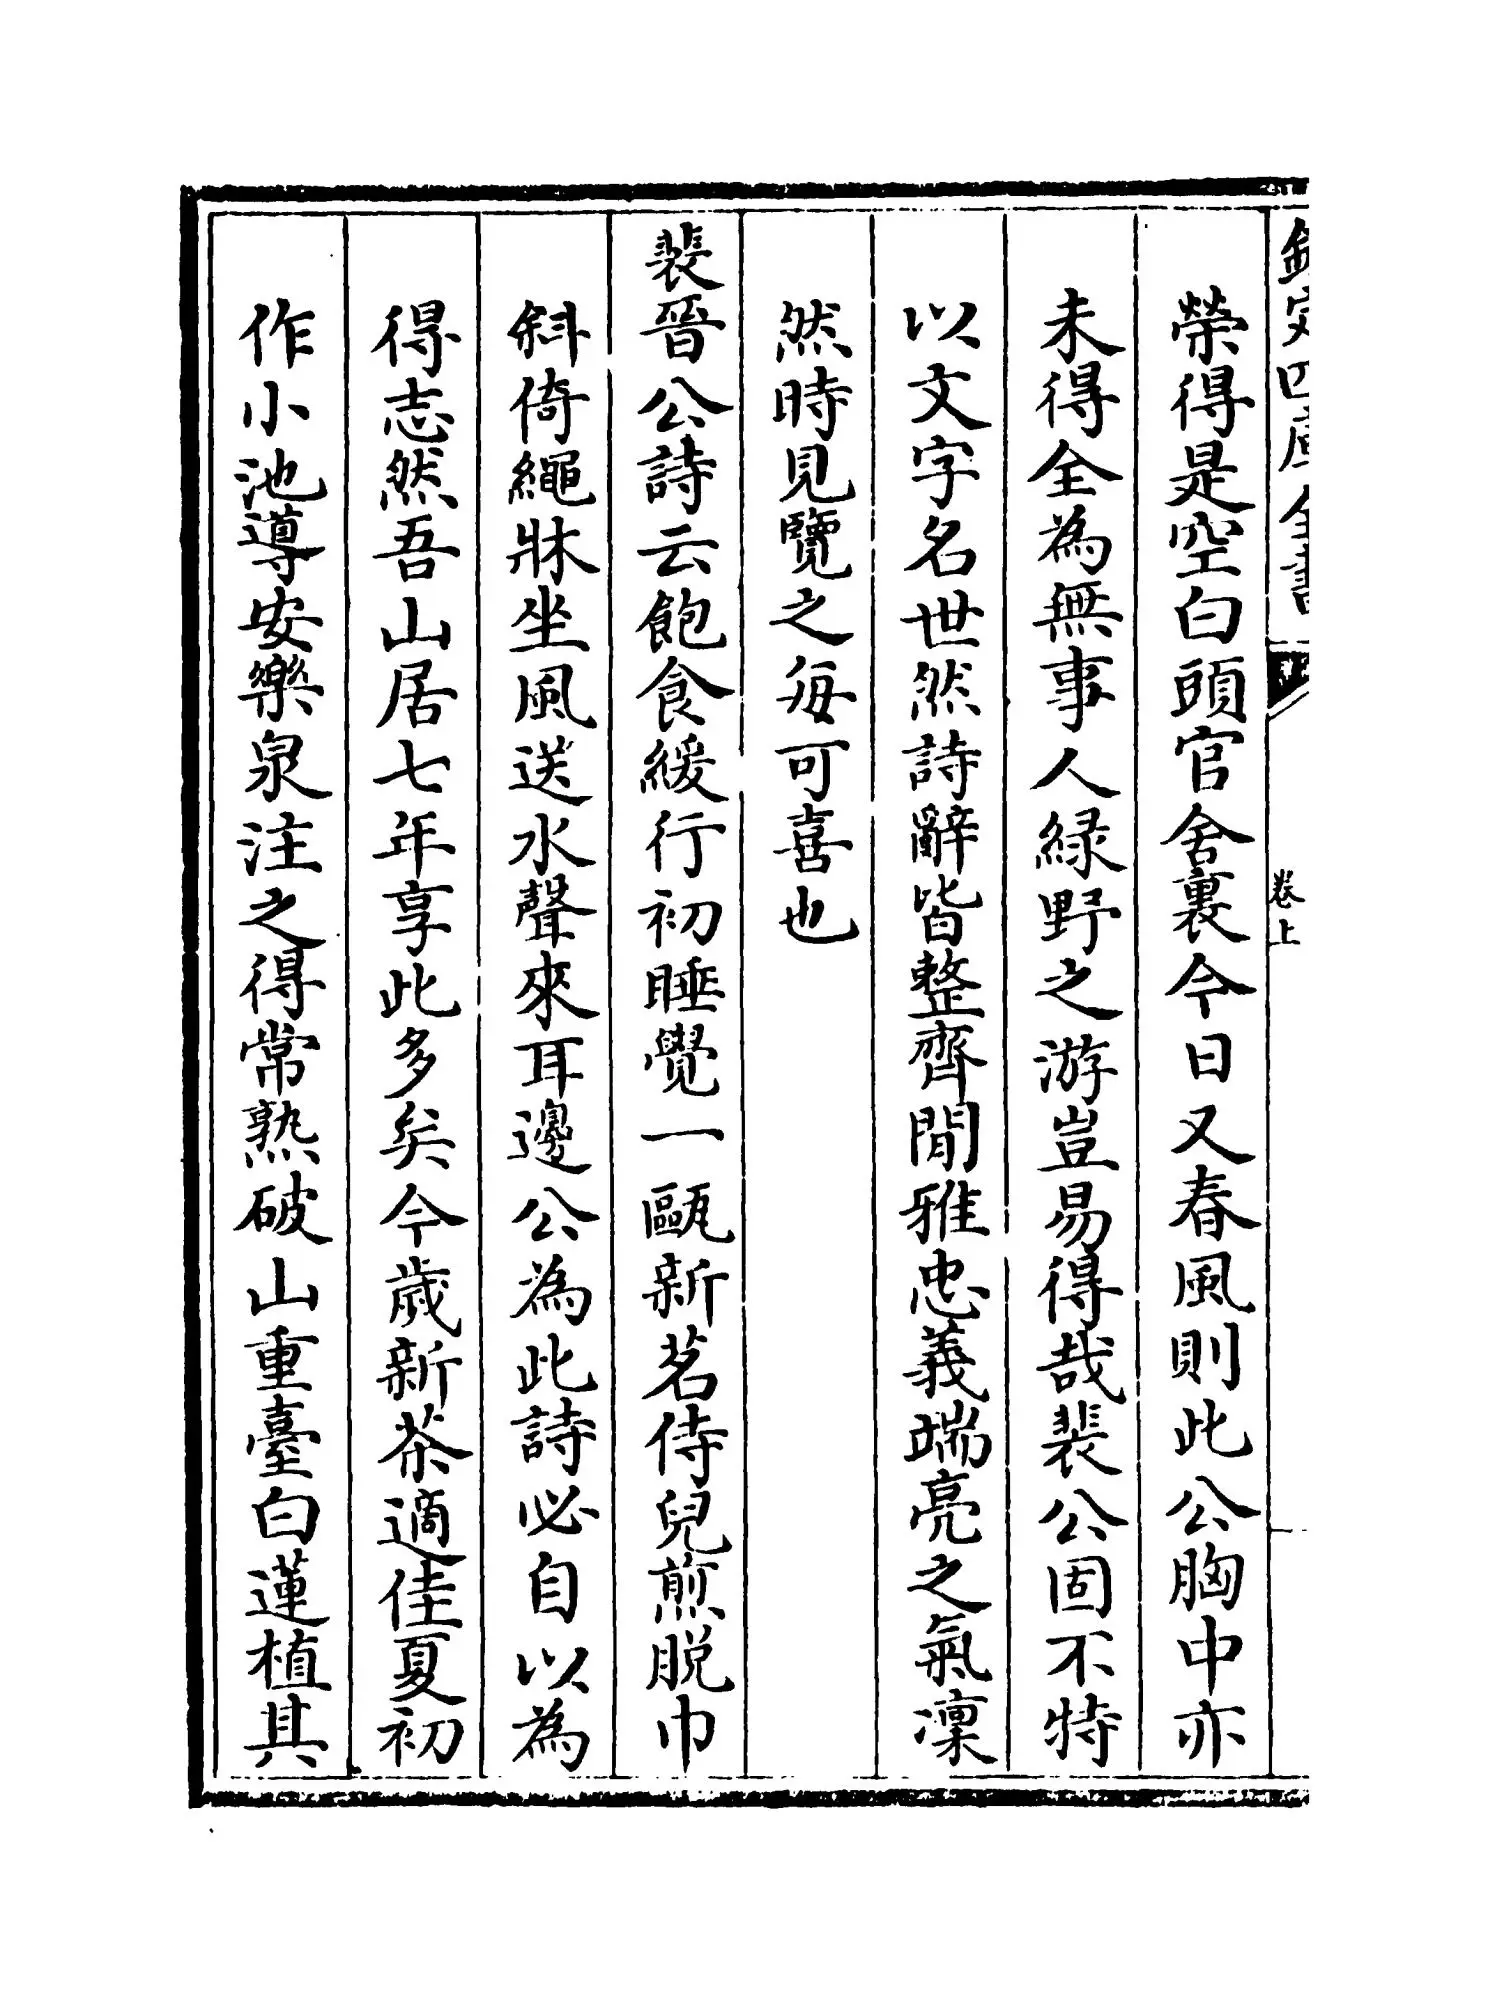 欽定四庫全書
卷上
榮得是空白頭官舍裏今日又春風則此公胸中亦
未得全為無事人緑野之游豈易得哉裴公固不特
以文字名世然詩辭皆整齊閒雅忠義端亮之氣凜
然時見覽之每可喜也
裴晉公詩云飽食緩行初睡覺一甌新茗侍兒煎脱巾
斜倚繩牀坐風送水聲來耳邊公為此詩必自以為
得志然吾山居七年享此多矣今歲新茶適佳夏初
作小池導安樂泉注之得常熟破山重臺白蓮植其